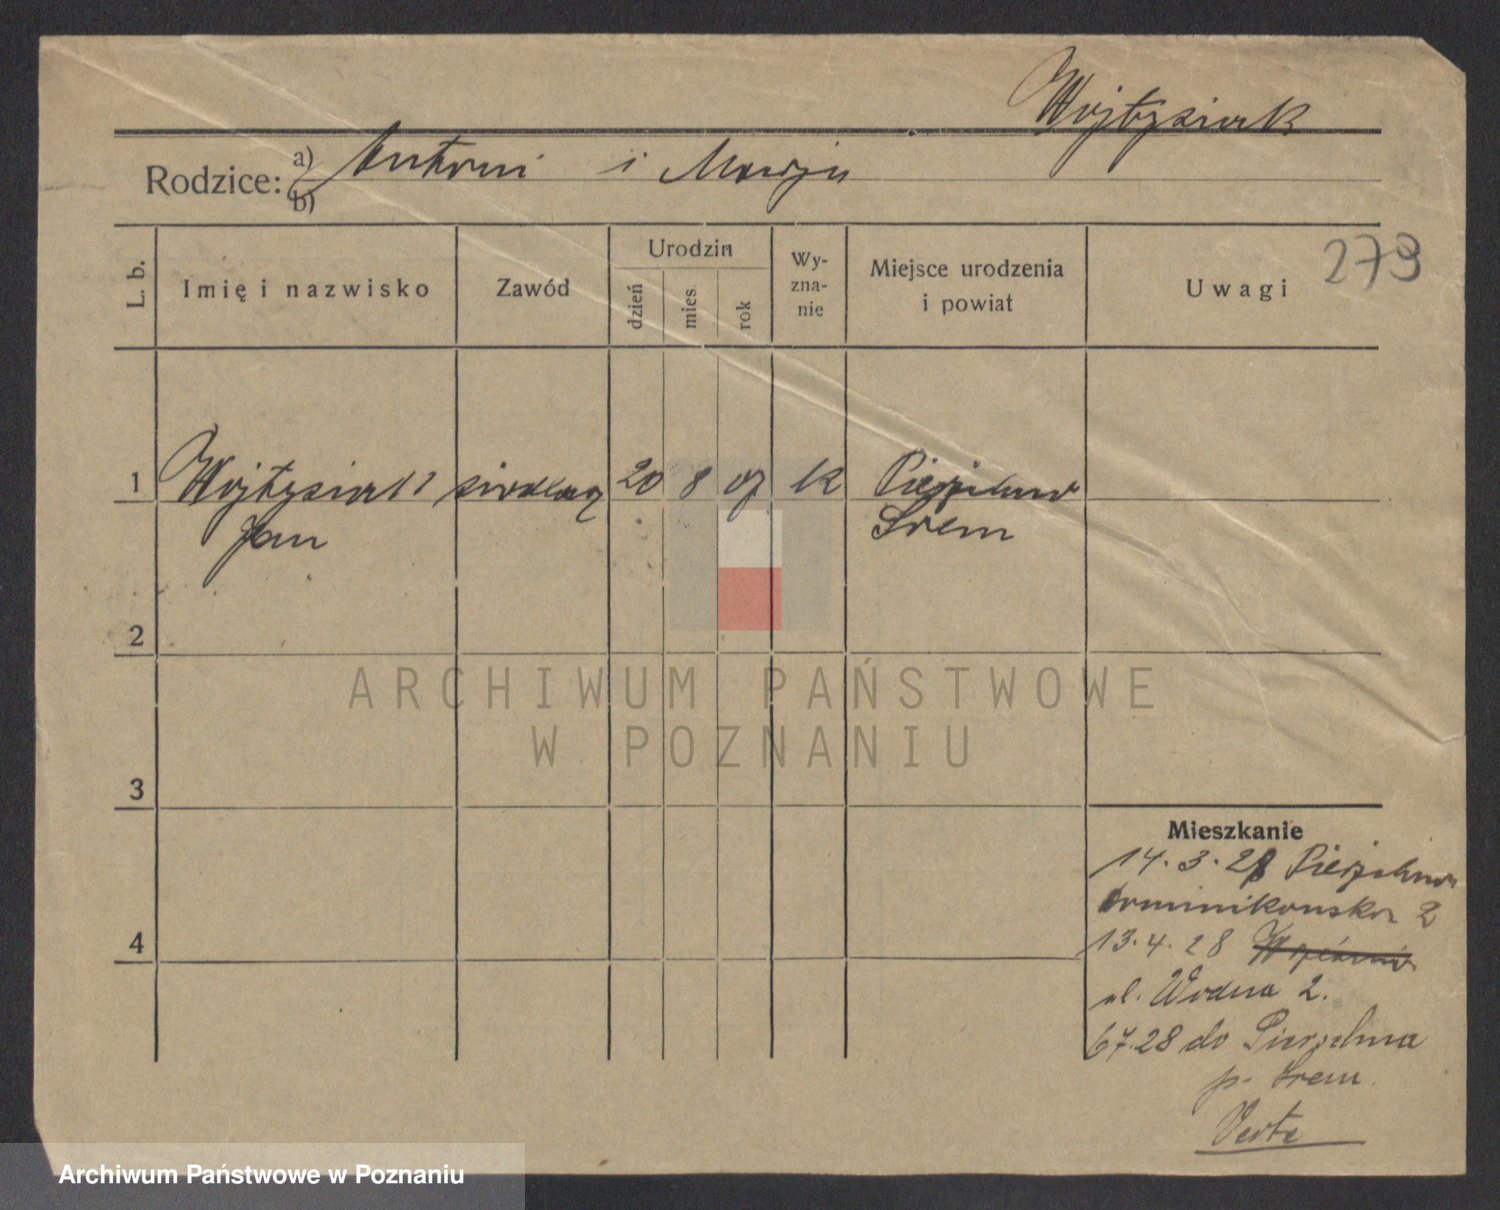 Wojtysiak
Rodzice: a) Antoni i Marja
b)
L. b.
Imię i nazwisko
Zawód
Urodzin
dzień
mies.
rok
Wy-
zna-
nie
Miejsce urodzenia
i powiat
Uwagi
273
1 Wojtysiak siodlarz 20 8 07 k
Jan Śrem
2
3
4
Mieszkanie
14.3.28
Dominikańska 2
13.4.28
ul. Wodna 2.
6.7.28 do
p. Śrem
Verte
ARCHIWUM PAŃSTWOWE
W POZNANIU
Archiwum Państwowe w Poznaniu